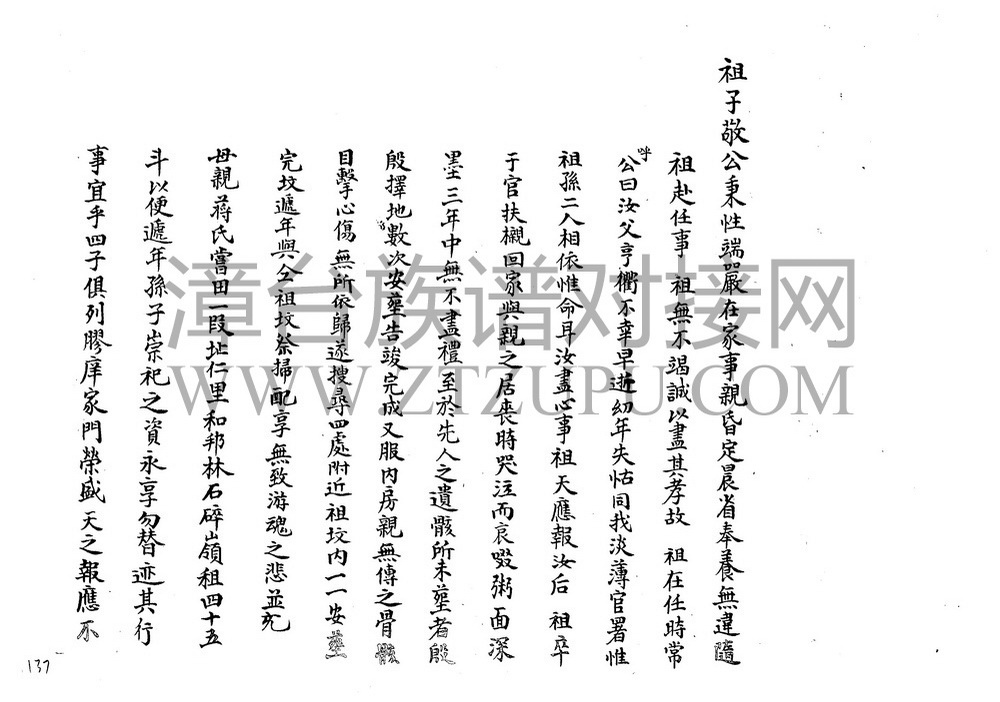 祖子敬公秉性端嚴在家事親昏定晨省奉養無違隨
祖赴任事 祖無不竭誠以盡其孝故 祖在任時常
呼
公曰汝父亨衢不幸早逝幼年失怙同我淡薄官署惟
祖孫二人相依惟命耳汝盡心事祖天應報汝后 祖卒
于官扶櫬回家與親之居喪時哭泣而哀啜粥面深
墨三年中無不盡禮至於先人之遺骸所未塟者殷
殷擇地數次安塟告竣完成又服內房親無傳之骨骸
目擊心傷無所依歸遂搜尋四處附近祖坟內一一安塟
完坟遞年與仝祖坟祭掃配享無致游魂之悲並充
母親蔣氏嘗田一段址仁里和邦林石碎嶺租四十五
斗以便遞年孫子崇祀之資永享勿替迹其行
事宜乎四子俱列膠庠家門榮盛 天之報應不
137
漳台族谱对接网
WWW.ZTZUPU.COM